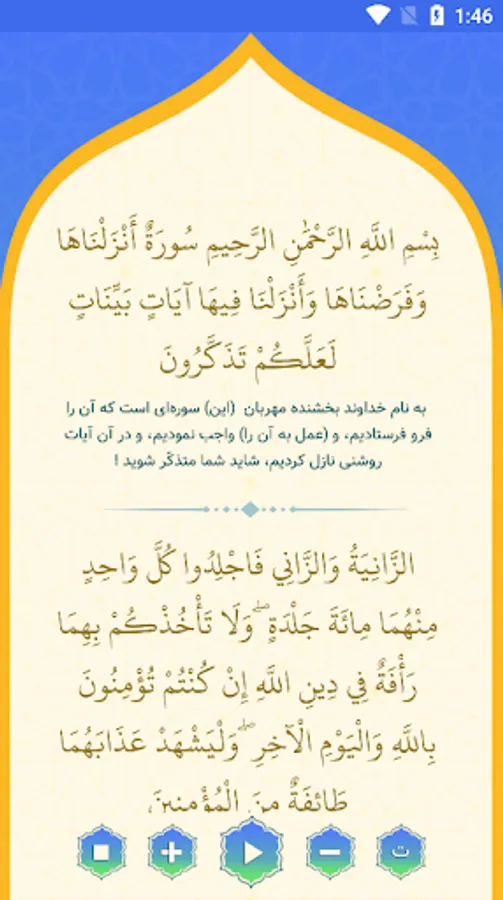 1:46
بِسْمِ اللَّهِ الرَّحْمَٰنِ الرَّحِيمِ سُورَةٌ أَنْزَلْنَاهَا
وَفَرَضْنَاهَا وَأَنْزَلْنَا فِيهَا آيَاتٍ بَيِّنَاتٍ
لَعَلَّكُمْ تَذَكَّرُونَ
به نام خداوند بخشنده مهربان (این) سوره‌ای است که آن را
فرو فرستادیم، و (عمل به آن را) واجب نمودیم، و در آن آیات
روشنی نازل کردیم، شاید شما متذکّر شوید !
الزَّانِيَةُ وَالزَّانِي فَاجْلِدُوا كُلَّ وَاحِدٍ
مِنْهُمَا مِائَةَ جَلْدَةٍ ۖ وَلَا تَأْخُذْكُمْ بِهِمَا
رَأْفَةٌ فِي دِينِ اللَّهِ إِنْ كُنْتُمْ تُؤْمِنُونَ
بِاللَّهِ وَالْيَوْمِ الْآخِرِ ۖ وَلْيَشْهَدْ عَذَابَهُمَا
طَائِفَةٌ مِنَ الْمُؤْمِنِينَ
ت